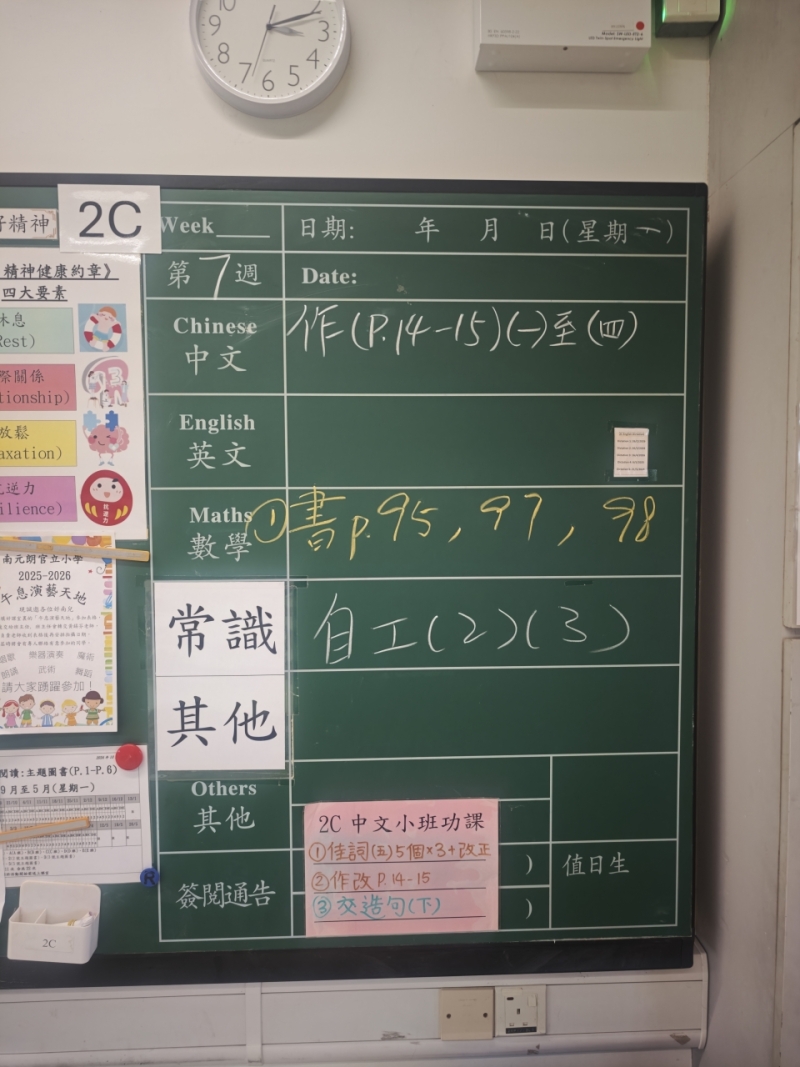 10
9
8
7
6
5
4
3
2C
好精神
精神健康約章》
四大要素
休息
Rest)
際關係
tionship)
放鬆
axation)
抗逆力
ilience)
南元朗官立小學
2025-2026
午息演藝天地
唱歌 樂器演奏 魔術
朗誦 武術 舞蹈
請大家踴躍參加!
閱讀:主題圖書(P.1-P.6)
9月至5月(星期一)
R
2C
Week
日期: 年 月 日(星期一)
第7週
Date:
Chinese
中文
作(P.14-15)(一)至(四)
English
英文
Maths
數學
①書p.95, 97, 98
常識
自工(2)(3)
其他
Others
其他
簽閱通告
)
)
值日生
2C 中文小班功課
①佳詞(五)5個×3+改正
②作改 P.14-15
③交造句(下)